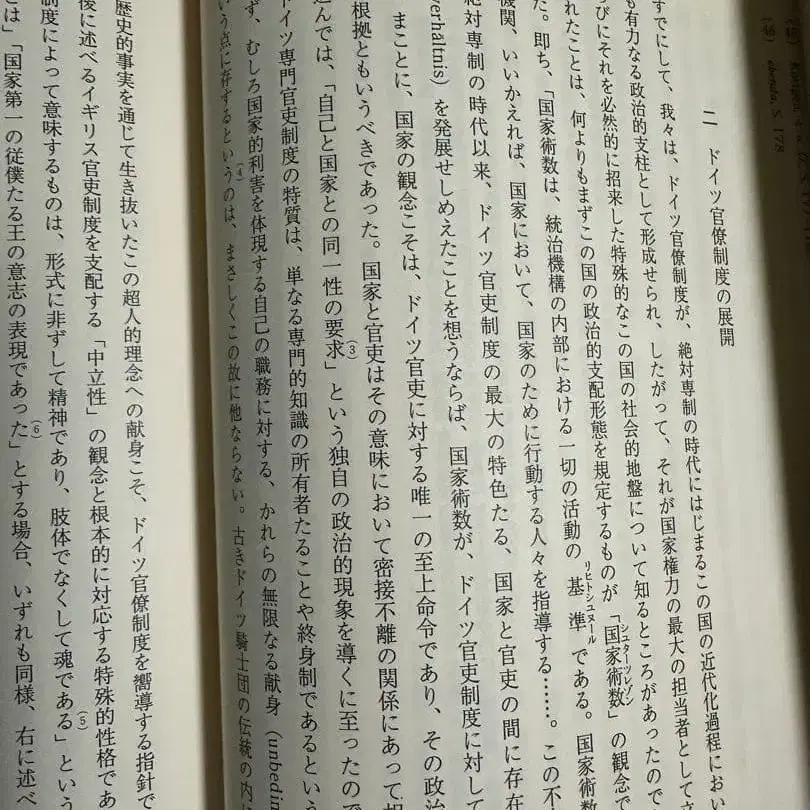 (45) ebenda, S. 178
二　ドイツ官僚制度の展開
すでにして、我々は、ドイツ官僚制度が、絶対専制の時代にはじまるこの国の近代化過程にお
も有力なる政治的支柱として形成せられ、したがって、それが国家権力の最大の担当者としてさ
びにそれを必然的に招来した特殊的なこの国の社会的地盤について知るところがあったので
れたことは、何よりもまずこの国の政治的支配形態を規定するものが「国家術数」の観念で
た。即ち、「国家術数は、統治機構の内部における一切の活動の基準である。国家術数
機関、いいかえれば、国家において、国家のために行動する人々を指導する……。この不
絶対専制の時代以来、ドイツ官吏制度の最大の特色たる、国家と官吏の間に存在
verhaltnis)を発展せしめえたことを想うならば、国家術数が、ドイツ官吏制度に対して
まことに、国家の観念こそは、ドイツ官吏に対する唯一の至上命令であり、その政治
根拠ともいうべきであった。国家と官吏はその意味において密接不離の関係にあって相
込んでは、「自己と国家との同一性の要求」(3)という独自の政治的現象を導くに至ったので
ドイツ専門官吏制度の特質は、単なる専門的知識の所有者たることや終身制であるという
ず、むしろ国家的利害を体現する自己の職務に対する、かれらの無限なる献身(unbedin
いう点に存する(4)というのは、まさしくこの故に他ならない。古きドイツ騎士団の伝統の内に
歴史的事実を通じて生き抜いたこの超人的理念への献身こそ、ドイツ官僚制度を嚮導する指針で
後に述べるイギリス官吏制度を支配する「中立性」の観念と根本的に対応する特殊的性格であ
制度によって意味するものは、形式に非ずして精神であり、肢体でなくして魂である」(5)という
とは」「国家第一の従僕たる王の意志の表現であった」(6)とする場合、いずれも同様、右に述べ